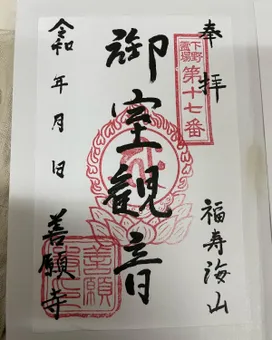 奉拝
下野
霊場
第十七番
福寿海山
御室観音
令和 年 月 日
善願寺